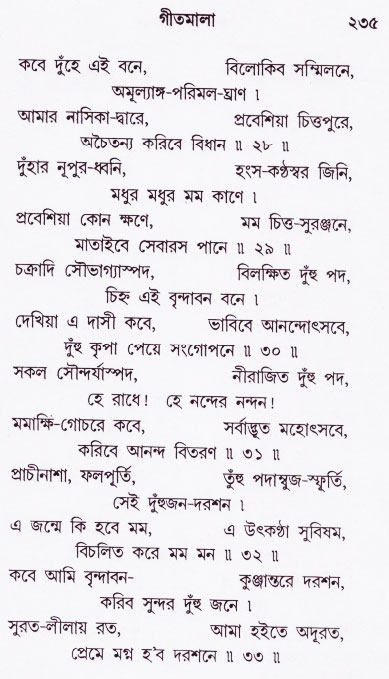 গীতমালা ২৩৫
কবে দুঁহে এই বনে, বিলোকিব সম্মিলনে,
অমূল্যাঙ্গ-পরিমল-ঘ্রাণ ।
আমার নাসিকা-দ্বারে, প্রবেশিয়া চিত্তপুরে,
অচৈতন্য করিবে বিধান ॥ ২৮ ॥
দুঁহার নূপুর-ধ্বনি, হংস-কণ্ঠস্বর জিনি,
মধুর মধুর মম কাণে ।
প্রবেশিয়া কোন ক্ষণে, মম চিত্ত-সুরঞ্জনে,
মাতাইবে সেবারস পানে ॥ ২৯ ॥
চক্রাদি সৌভাগ্যাস্পদ, বিলক্ষিত দুঁহু পদ,
চিহ্ন এই বৃন্দাবন বনে ।
দেখিয়া এ দাসী কবে, ভাবিবে আনন্দোৎসবে,
দুঁহু কৃপা পেয়ে সংগোপনে ॥ ৩০ ॥
সকল সৌন্দর্যাস্পদ, নীরাজিত দুঁহু পদ,
হে রাধে! হে নন্দের নন্দন!
মমাক্ষি-গোচরে কবে, সর্বাদ্ভুত মহোৎসবে,
করিবে আনন্দ বিতরণ ॥ ৩১ ॥
প্রাচীনাশা, ফলপূর্তি, তুঁহু পদাম্বুজ-স্ফূর্তি,
সেই দুঁহুজন-দরশন ।
এ জন্মে কি হবে মম, এ উৎকণ্ঠা সুবিষম,
বিচলিত করে মম মন ॥ ৩২ ॥
কবে আমি বৃন্দাবন- কুঞ্জান্তরে দরশন,
করিব সুন্দর দুঁহু জনে ।
সুরত-লীলায় রত, আমা হইতে অদূরত,
প্রেমে মগ্ন হ'ব দরশনে ॥ ৩৩ ॥